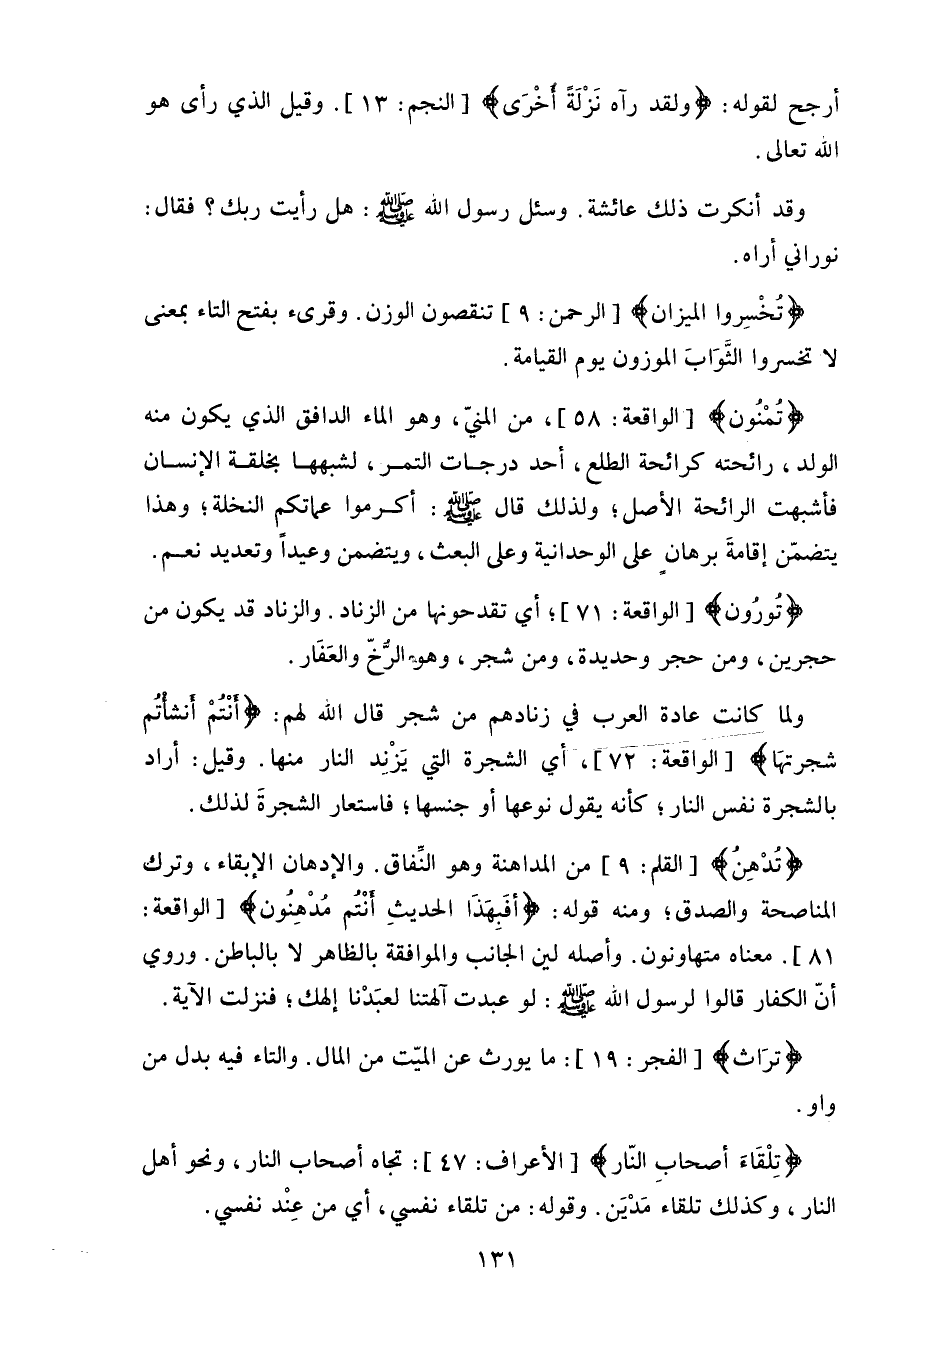 أرجح لقوله: ﴿ولقد رآه نَزْلَةً أُخْرَى﴾ [النجم: ١٣]. وقيل الذي رأى هو
الله تعالى.
وقد أنكرت ذلك عائشة. وسئل رسول الله ﷺ: هل رأيت ربك؟ فقال:
نوراني أراه.
﴿تُخْسِروا الميزان﴾ [الرحمن: ٩] تنقصون الوزن. وقرىء بفتح التاء بمعنى
لا تخسروا الثَّوَابَ الموزون يوم القيامة.
﴿تُمْنُون﴾ [الواقعة: ٥٨]، من المنيّ، وهو الماء الدافق الذي يكون منه
الولد، رائحته كرائحة الطلع، أحد درجات التمر، لشبهها بخلقة الإنسان
فأشبهت الرائحة الأصل؛ ولذلك قال ﷺ: أكرموا عماتكم النخلة؛ وهذا
يتضمّن إقامةَ برهانٍ على الوحدانية وعلى البعث، ويتضمن وعيداً وتعديد نعم.
﴿تُورُون﴾ [الواقعة: ٧١]؛ أي تقدحونها من الزناد. والزناد قد يكون من
حجرين، ومن حجر وحديدة، ومن شجر، وهو الرُّخّ والعَفَار.
ولما كانت عادة العرب في زنادهم من شجر قال الله لهم: ﴿أَنْتُمْ أَنشأْتُم
شجرتهَا﴾ [الواقعة: ٧٢]، أي الشجرة التي يَزْنِد النار منها. وقيل: أراد
بالشجرة نفس النار؛ كأنه يقول نوعها أو جنسها؛ فاستعار الشجرةَ لذلك.
﴿تُدْهِنُ﴾ [القلم: ٩] من المداهنة وهو النِّفاق. والإدهان الإبقاء، وترك
المناصحة والصدق؛ ومنه قوله: ﴿أفَبِهَذَا الحديثِ أَنْتُم مُدْهِنُون﴾ [الواقعة:
٨١]. معناه متهاونون. وأصله لين الجانب والموافقة بالظاهر لا بالباطن. وروي
أنّ الكفار قالوا لرسول الله ﷺ: لو عبدت آلهتنا لعبَدْنا إلهك؛ فنزلت الآية.
﴿ترَاث﴾ [الفجر: ١٩]: ما يورث عن الميّت من المال. والتاء فيه بدل من
واو.
﴿تِلْقَاءَ أصحابِ النّار﴾ [الأعراف: ٤٧]: تجاه أصحاب النار، ونحو أهل
النار، وكذلك تلقاء مَدْيَن. وقوله: من تلقاء نفسي، أي من عِنْد نفسي.
١٣١